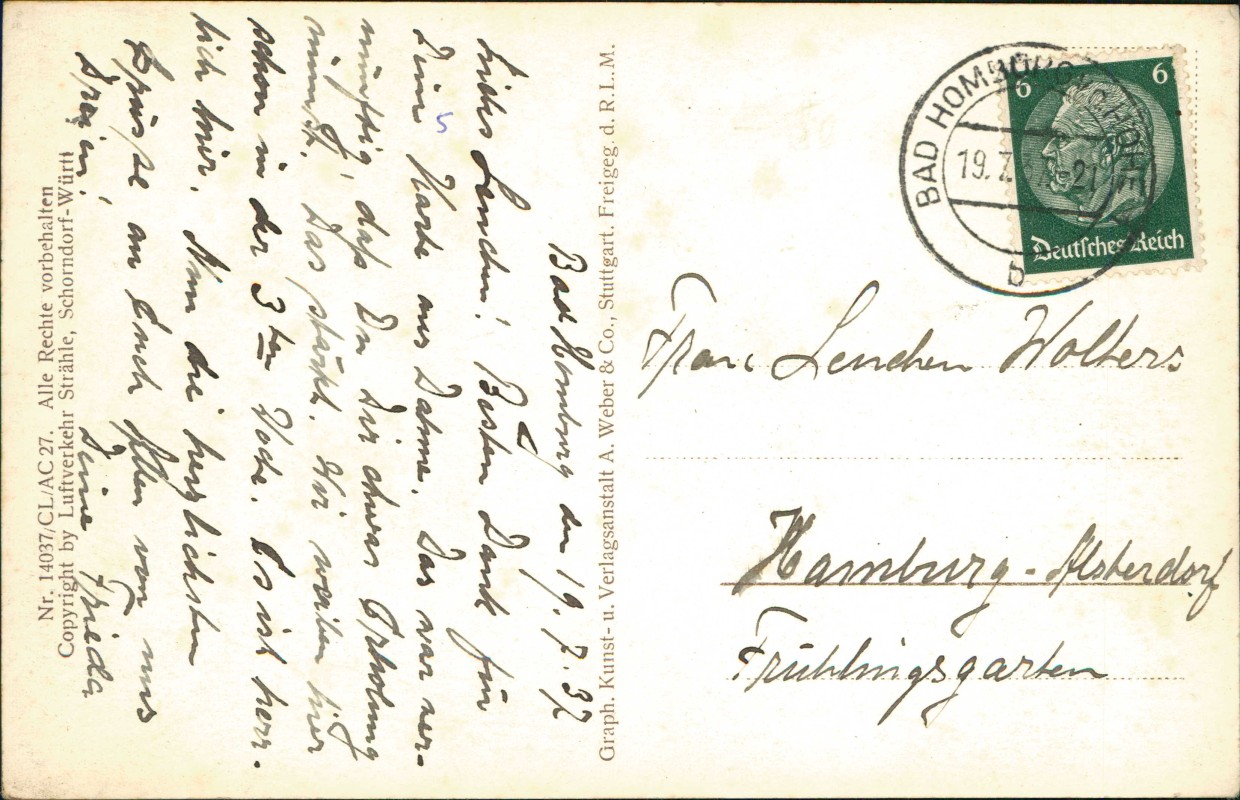 Bad Homburg den 19. 7. 37
Liebes Lenchen! Besten Dank für
Deine Karte aus Dahme. Das war ver-
nünftig, daß Du Dir etwas Erholung
nimmst. Das stärkt. Wir weilen hier
schon in der 3ten Woche. Es ist herr-
lich hier. Nun die herzlichsten
Grüsse an Euch Allen von uns
Dreien!
Deine Frieda
Nr. 14037/CL/AC 27. Alle Rechte vorbehalten
Copyright by Luftverkehr Strähle, Schorndorf-Württ
Graph. Kunst- u. Verlagsanstalt A. Weber & Co., Stuttgart. Freigeg. d. R. L. M.
BAD HOMBURG
19. 7. 37 -21
b
6 6
Deutsches Reich
Frau Lenchen Wolters
Hamburg-Alsterdorf
Frühlingsgarten